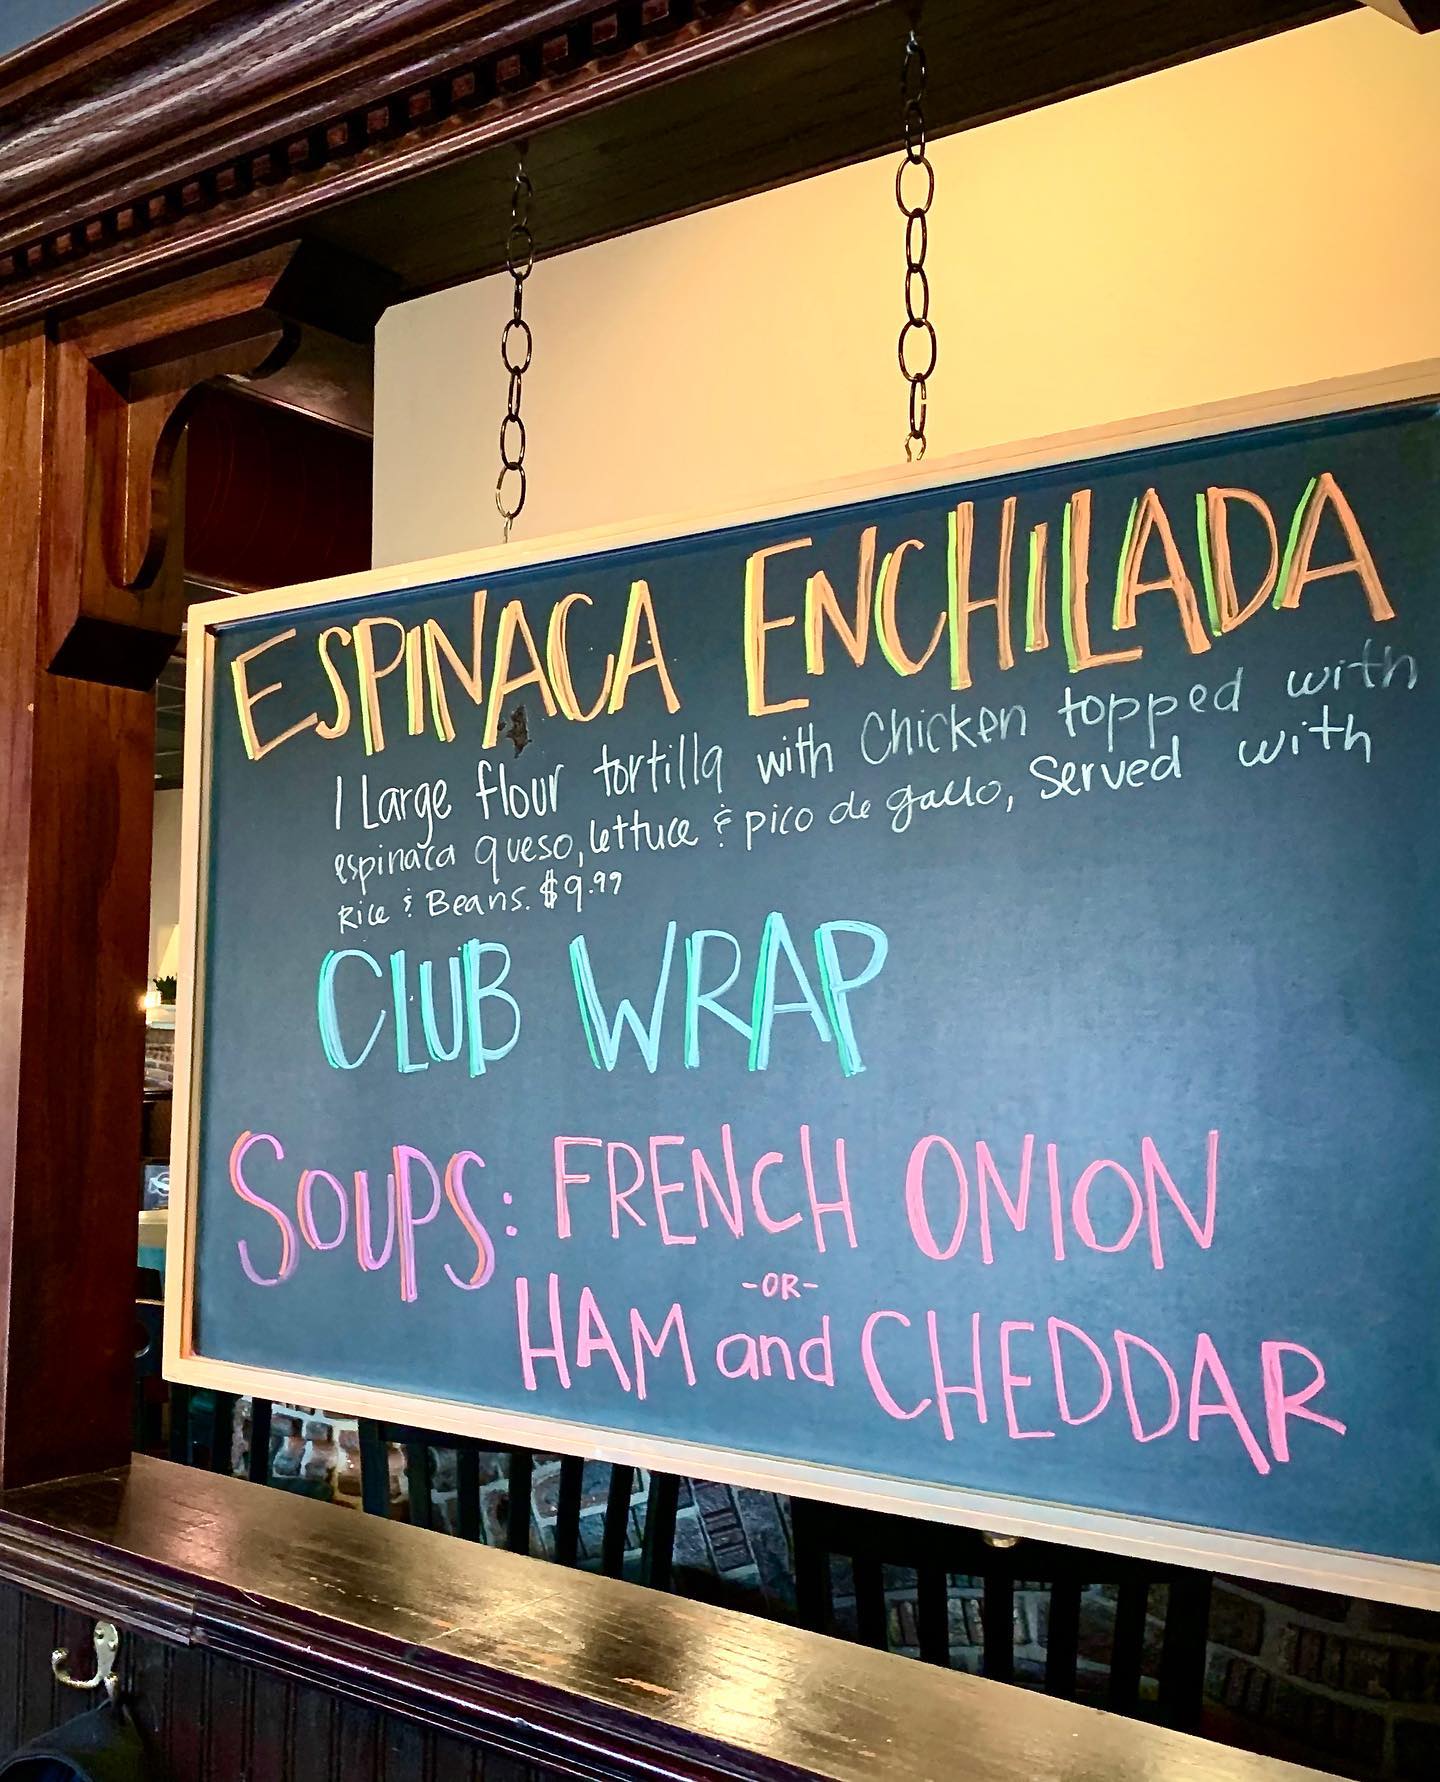 ESPINACA ENCHILADA
1 Large flour tortilla with Chicken topped with
espinaca queso, lettuce & pico de gallo, Served with
Rice & Beans. $9.99
CLUB WRAP
SOUPS: FRENCH ONION
-OR-
HAM and CHEDDAR